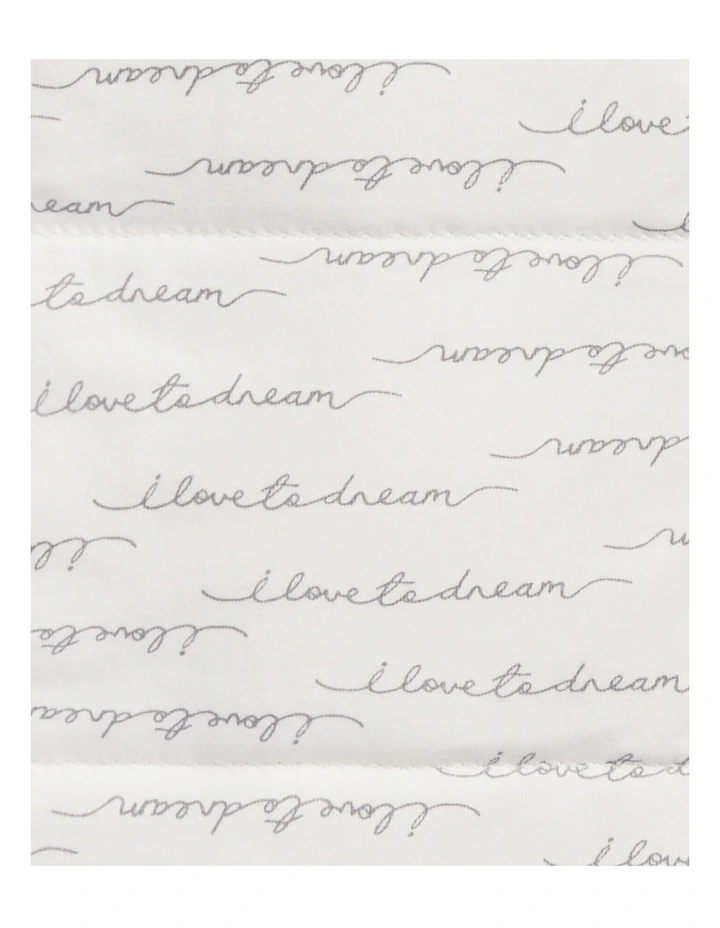 i love to dream
i love
i love to dream
eam
i love to dream
to dream
ove to dream
i love to dream
dream
i love to dream
i l
i love to dream
i love to
i love to dream
i love to drea
i love to d
i love to dream
i lov